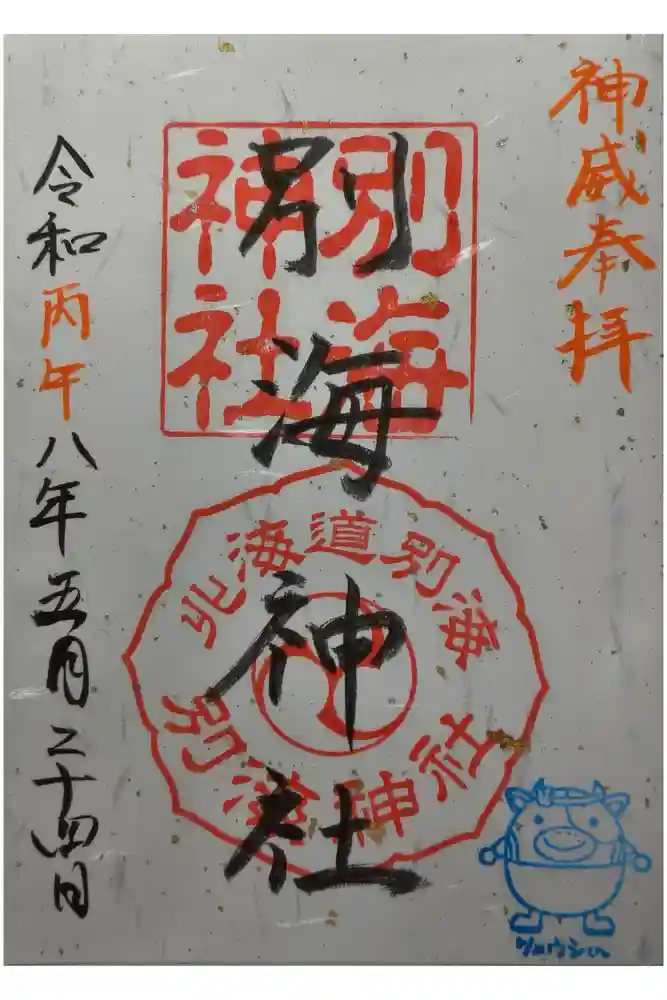 神威奉拝
別海神社
別海神社
北海道別海
別海神社
令和丙午八年五月二十四日
りょウシくん